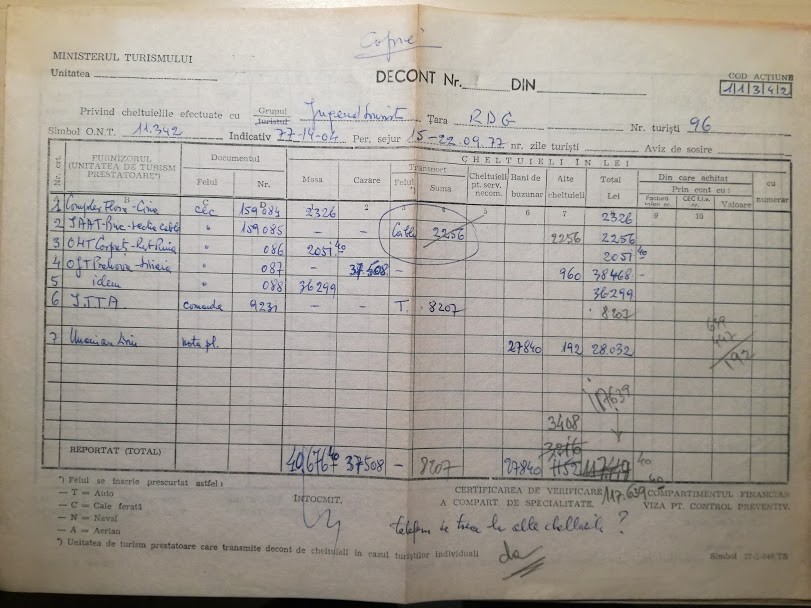 Copie
MINISTERUL TURISMULUI
Unitatea
DECONT Nr. DIN
COD ACTIUNE
1 1 3 4 2
Privind cheltuielile efectuate cu Grupul Turistul Jugendtourist Ţara RDG Nr. turişti 96
Simbol O.N.T. 11.342 Indicativ 77-14-04 Per. sejur 15-22.09.77 nr. zile turişti Aviz de sosire
CHELTUIELI IN LEI
Nr. crt. FURNIZORUL (UNITATEA DE TURISM PRESTATOARE*) Documentul Felul Nr. Masa Cazare Transport Felul Suma Cheltuieli pt. serv. necom. Bani de buzunar Alte cheltuieli Total Lei Din care achitat Prin cont cu: Valoare cu numerar
B C D 2 3 4 5 6 7 8 9 10
1 Complex Flora cec 159084 2326 2326
2 " 159085 - - Cablu 2256 2256 2256
3 OHT Carpaţi " 086 2051 40 2051 40
4 OJT Prahova Sinaia " 087 37508 - 960 38468 -
5 idem " 088 36299 36299
6 ITTA comanda 9231 - - T. 8207 8207
7 nota pl. 27840 192 28.032
639
447
192
117639
3408
REPORTAT (TOTAL) 40,676 40 37508 - 8207 27840 40
*) Felul se înscrie prescurtat astfel:
— T = Auto
— C = Cale ferată
— N = Naval
— A = Aerian
INTOCMIT,
CERTIFICAREA DE VERIFICARE A COMPART. DE SPECIALITATE.
117.639 40
COMPARTIMENTUL FINANCIAR
VIZA PT. CONTROL PREVENTIV.
la alte cheltuieli ?
da
*) Unitatea de turism prestatoare care transmite decont de cheltuieli in cazul turiştilor individuali